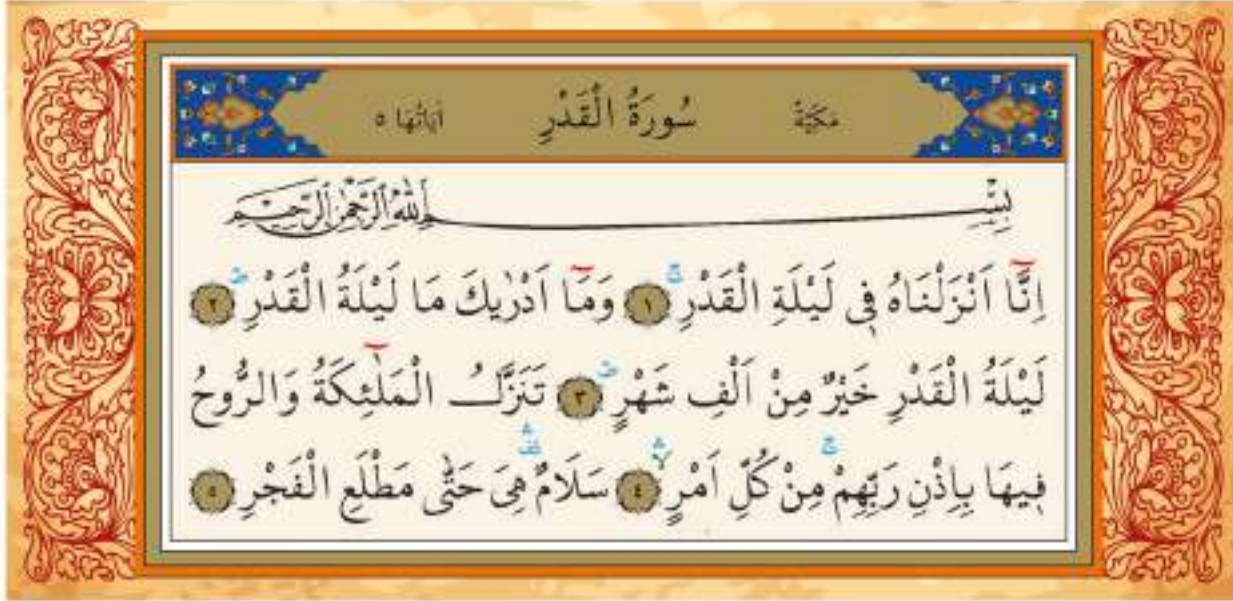 مَكِّيَّةٌ سُورَةُ الْقَدْرِ اٰيَاتُهَا ٥
بِسْمِ اللّٰهِ الرَّحْمٰنِ الرَّحِيمِ
اِنَّٓا اَنْزَلْنَاهُ فِى لَيْلَةِ الْقَدْرِۚ ١ وَمَٓا اَدْرٰيكَ مَا لَيْلَةُ الْقَدْرِۜ ٢
لَيْلَةُ الْقَدْرِ خَيْرٌ مِنْ اَلْفِ شَهْرٍۜ ٣ تَنَزَّلُ الْمَلٰٓئِكَةُ وَالرُّوحُ
فِيهَا بِاِذْنِ رَبِّهِمْۚ مِنْ كُلِّ اَمْرٍۙۛ ٤ سَلَامٌ۠ۛ هِىَ حَتّٰى مَطْلَعِ الْفَجْرِ ٥